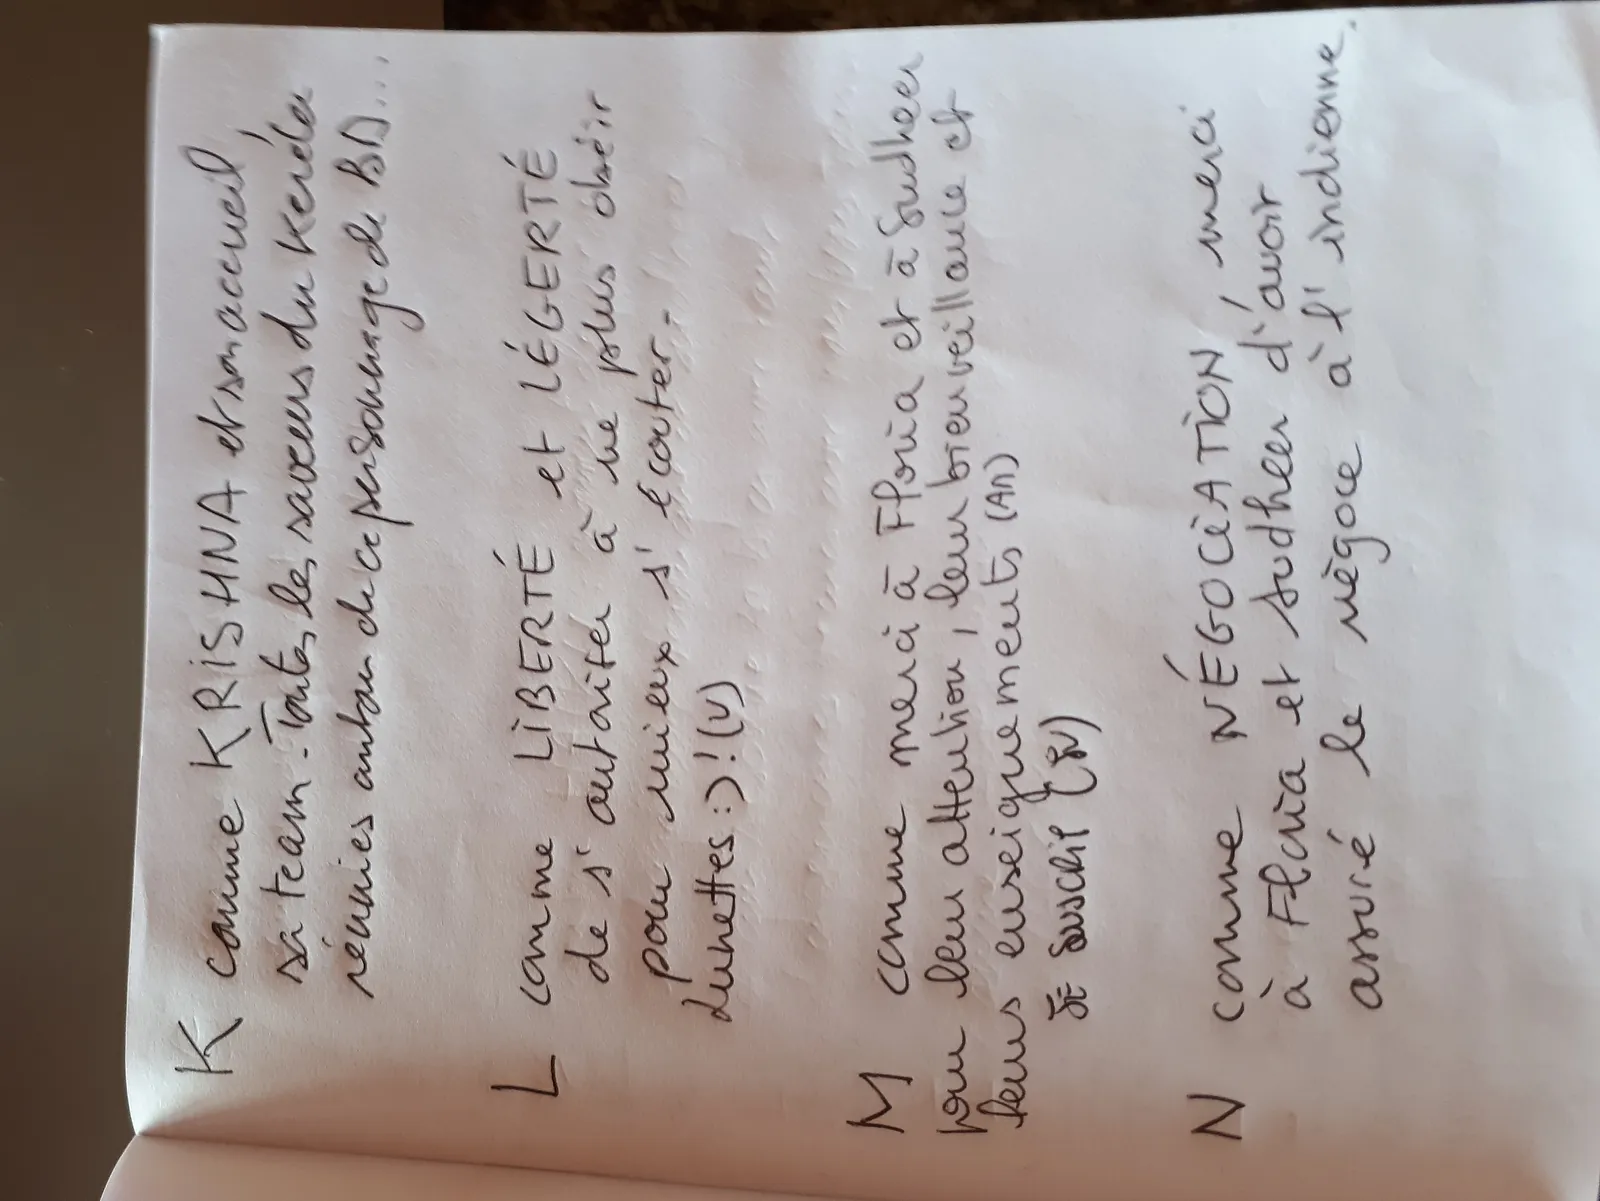 K comme KRISHNA et son accueil,
sa team. Toutes les saveurs du Kerala
réunies autour de ce personnage de BD...
L comme LIBERTÉ et LÉGERTÉ
de s'autoriser à ne plus obéir
pour mieux s'écouter.
Lunettes :)! (V)
M comme merci à Floria et à Sudheer
pour leur attention, leur bienveillance et
leurs enseignements (An)
JE SUSCRIT
N comme NÉGOCIATION, merci
à Floria et Sudheer d'avoir
assuré le négoce à l'indienne.